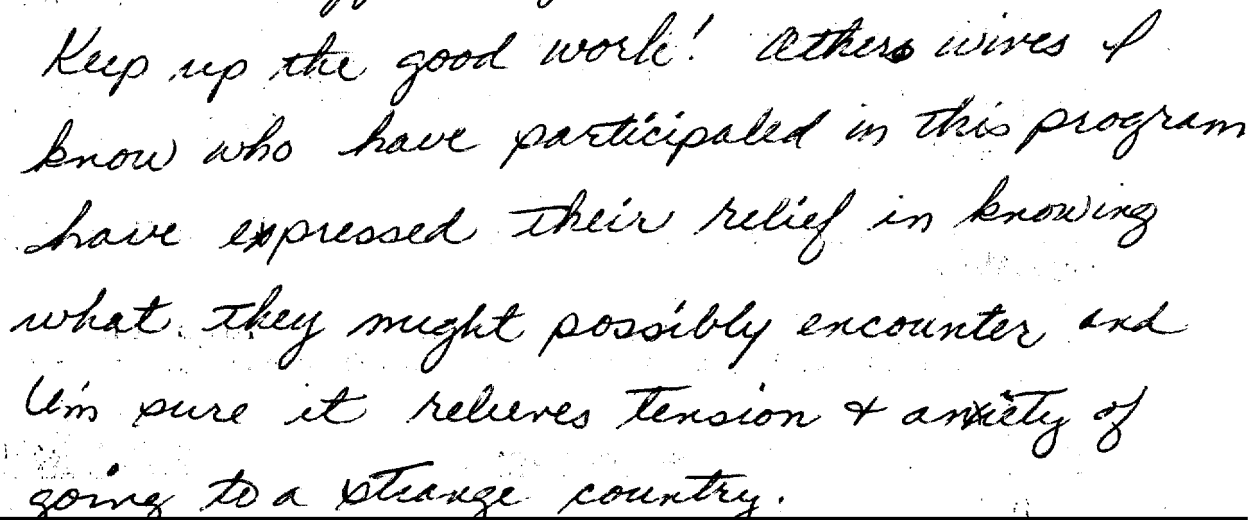 Keep up the good work! Others wives I
know who have participated in this program
have expressed their relief in knowing
what they might possibly encounter and
I'm sure it relieves tension & anxiety of
going to a strange country.